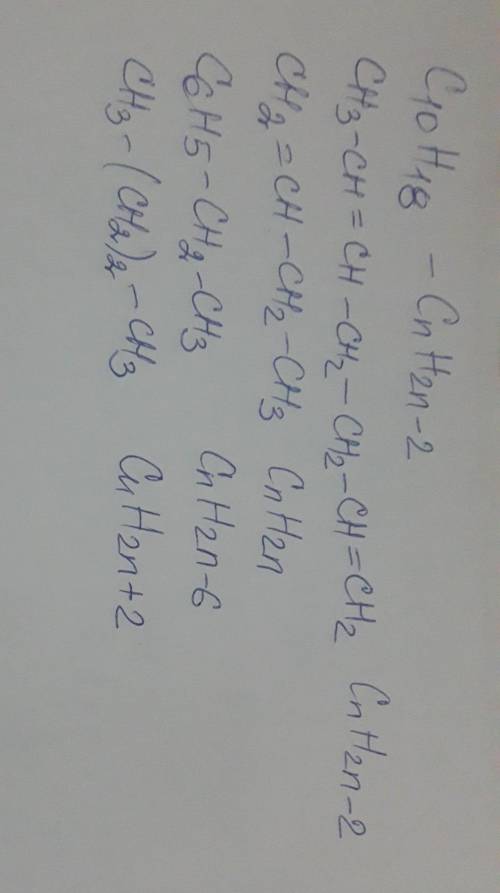 C10H18 - CnH2n-2
CH3-CH=CH-CH2-CH2-CH=CH2 CnH2n-2
CH2=CH-CH2-CH3 CnH2n
C6H5-CH2-CH3 CnH2n-6
CH3-(CH2)2-CH3 CnH2n+2